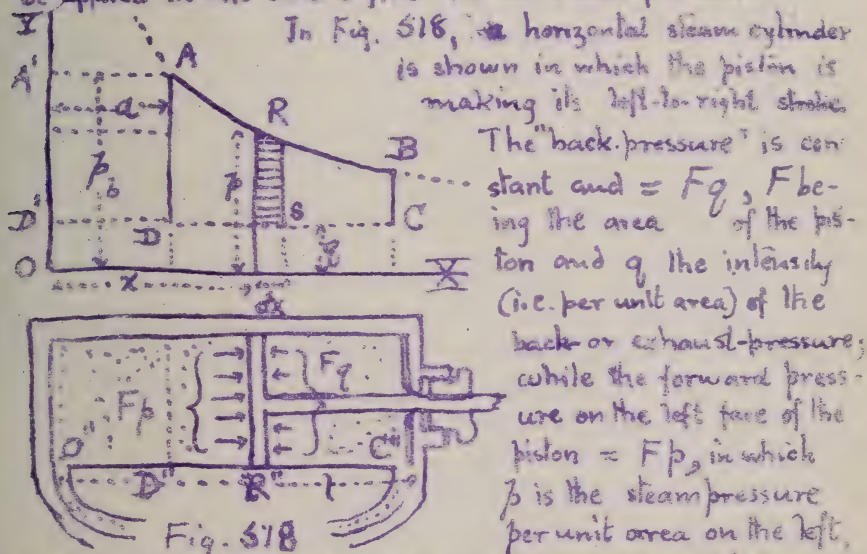 In Fig. 518, a horizontal steam cylinder
is shown in which the piston is
making its left-to-right stroke
The "back-pressure" is con
stant and = Fq, F be-
ing the area of the pis-
ton and q the intensity
(i.e. per unit area) of the
back- or exhaust-pressure;
while the forward press-
ure on the left face of the
piston = Fp, in which
p is the steam pressure
per unit area on the left,
Y
A' A
a
R
p
B
D' D S C
O x X
dx
Fp Fq
O" C"
D" R"
Fig. 518